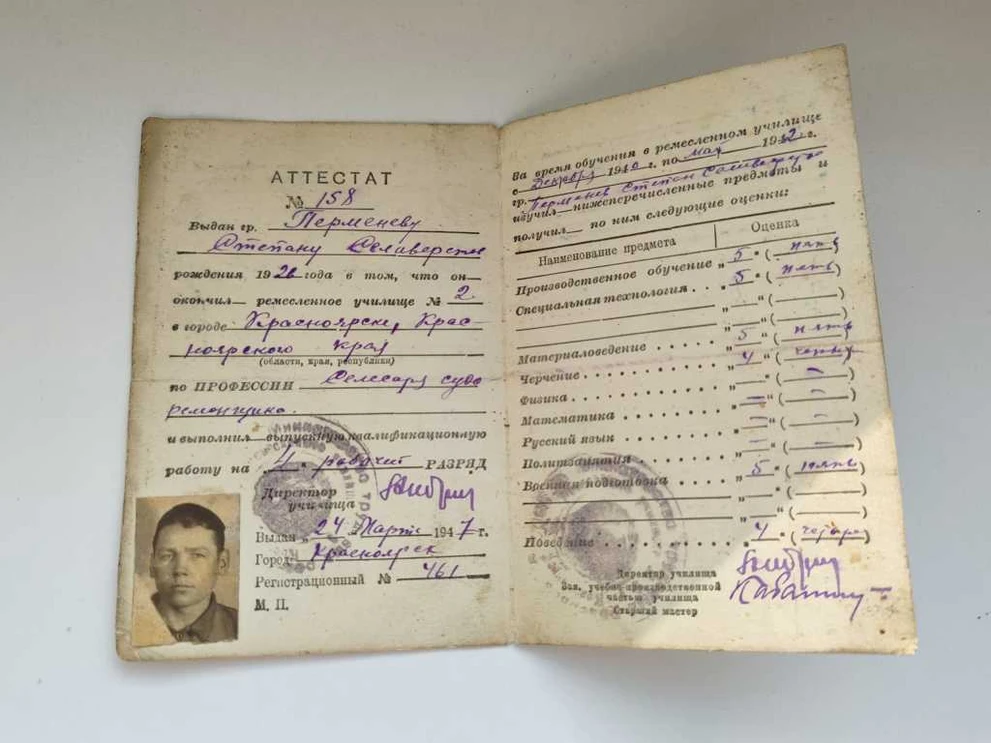 АТТЕСТАТ
№ 158
Выдан гр. Перменеву
Степану Селиверсто
рождения 1926 года в том, что он
окончил ремесленное училище № 2
в городе Красноярске, Крас
ноярского края
(области, края, республики)
по ПРОФЕССИИ Слесаря судо
ремонтника.
и выполнил выпускную квалификационную
работу на 4 РАЗРЯД
Директор
училища
Выдан „24 Марта 1947 г.
Город Красноярск
Регистрационный № 461
М. П.
За время обучения в ремесленном училище
с Декабря 1940 г. по май 1942 г.
гр. Перменев Степан
изучил нижеперечисленные предметы и
получил по ним следующие оценки:
Наименование предмета Оценка
Производственное обучение „ 5 “ ( пять )
Специальная технология . . . „ 5 “ ( пять )
Материаловедение „ 5 “ ( пять )
Черчение „ 4 “ ( четыре )
Физика „ — “ ( — )
Математика „ — “ ( — )
Русский язык „ — “ ( — )
Политзанятия „ — “ ( — )
Военная подготовка „ 5 “ ( пять )
Поведение „ 4 “ ( четыре )
Директор училища
Зав. учебно-производственной
частью училища
Старший мастер